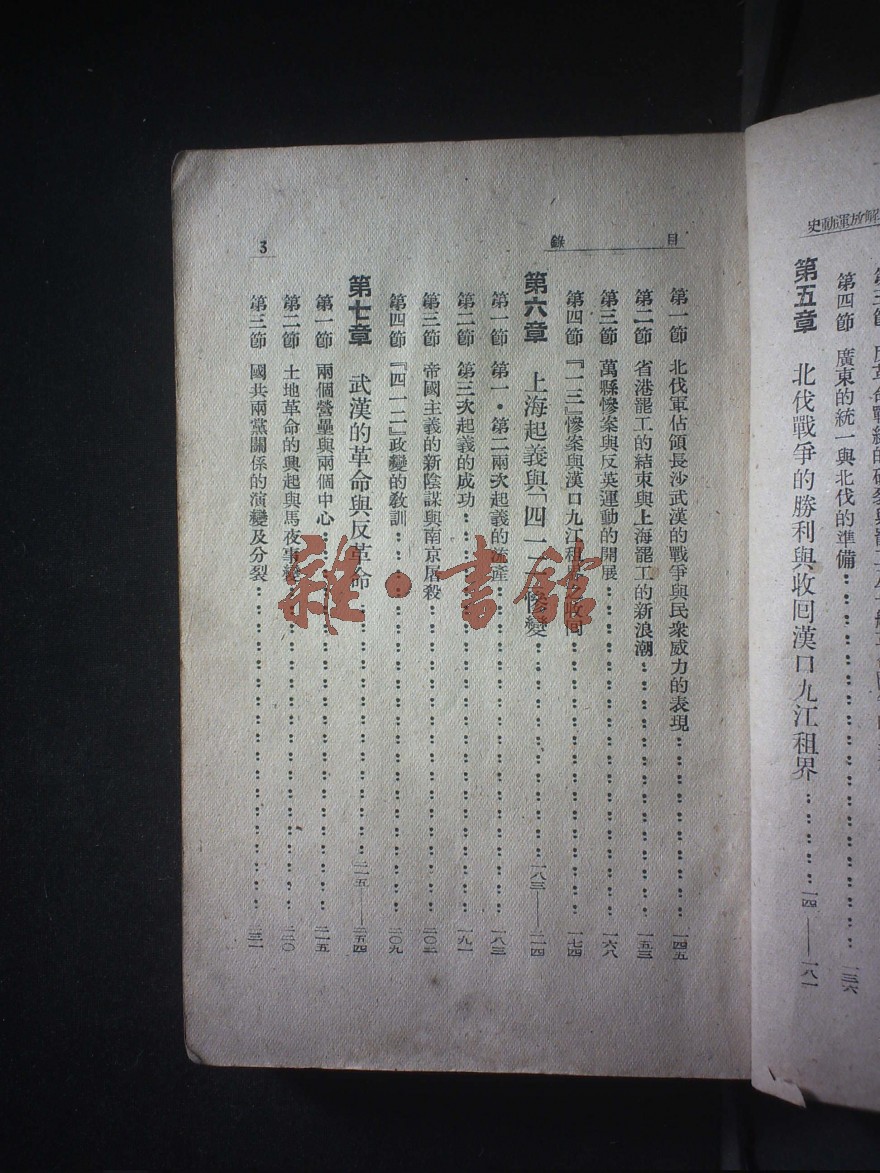 動運放解
史
第四節 廣東的統一與北伐的準備 一三六
第五章 北伐戰爭的勝利與收回漢口九江租界 一四 —— 一八一
目 錄 3
第一節 北伐軍佔領長沙武漢的戰爭與民衆威力的表現 一四五
第二節 省港罷工的結束與上海罷工的新浪潮 一五三
第三節 萬縣慘案與反英運動的開展 一六八
第四節 『一三』慘案與漢口九江租界之收回 一七四
第六章 上海起義與「四一二」慘變 一八三 —— 二一四
第一節 第一・第二兩次起義的流產 一八三
第二節 第三次起義的成功 一九一
第三節 帝國主義的新陰謀與南京屠殺 二〇二
第四節 『四一二』政變的教訓 二〇九
第七章 武漢的革命與反革命 二一五 —— 二五四
第一節 兩個營壘與兩個中心 二一五
第二節 土地革命的興起與馬夜事變 二二〇
第三節 國共兩黨關係的演變及分裂 二三一
雜・書館